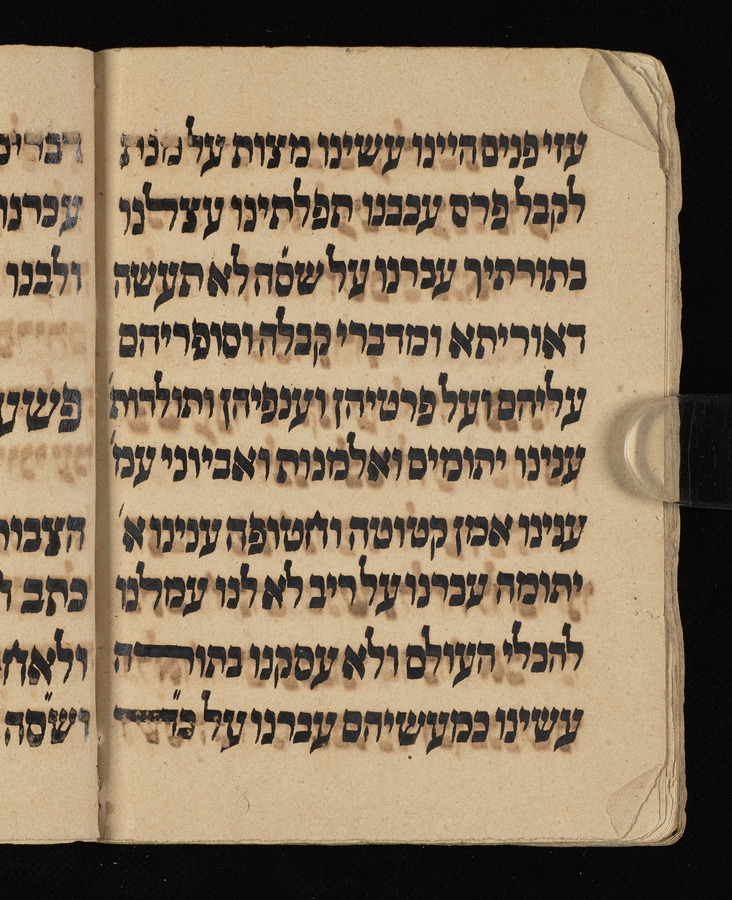 עזי פנים היינו עשינו מצות על מנת
לקבל פרס עכבנו תפלתינו עצרלנו
בתורתיך עברנו על שסה לא תעשה
דאוריתא ומדברי קבלה וסופריהם
עליהם ועל פרטיהן וענפיהן ותולדות
ענינו יתומים ואלמנות ואביוני עמ
ענינו אמן קטוטה וחטופה ענינו א
יתומה עברנו על ריב לא לנו עמלנו
להבלי העולם ולא עסקנו בתורה
עשינו כמעשיהם עברנו על
דברים
עברנו
ולבנו
פשע
הצבור
כתב
ולאח
ושסה